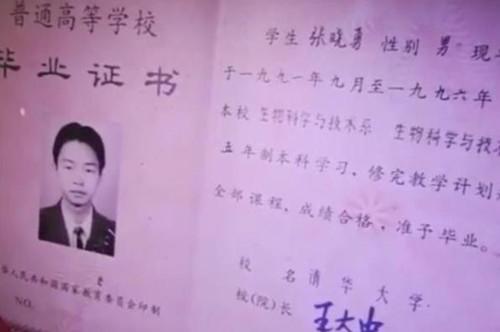 普通高等学校
毕业证书
华人民共和国国家教育委员会印制
NO.
学生 张晓勇 性别 男 现年
于一九九一年九月至一九九六年
本校 生物科学与技术系 生物科学与技术
五年制本科学习，修完教学计划
全部课程，成绩合格，准予毕业。
校 名 清 华 大 学
校(院)长 王大中